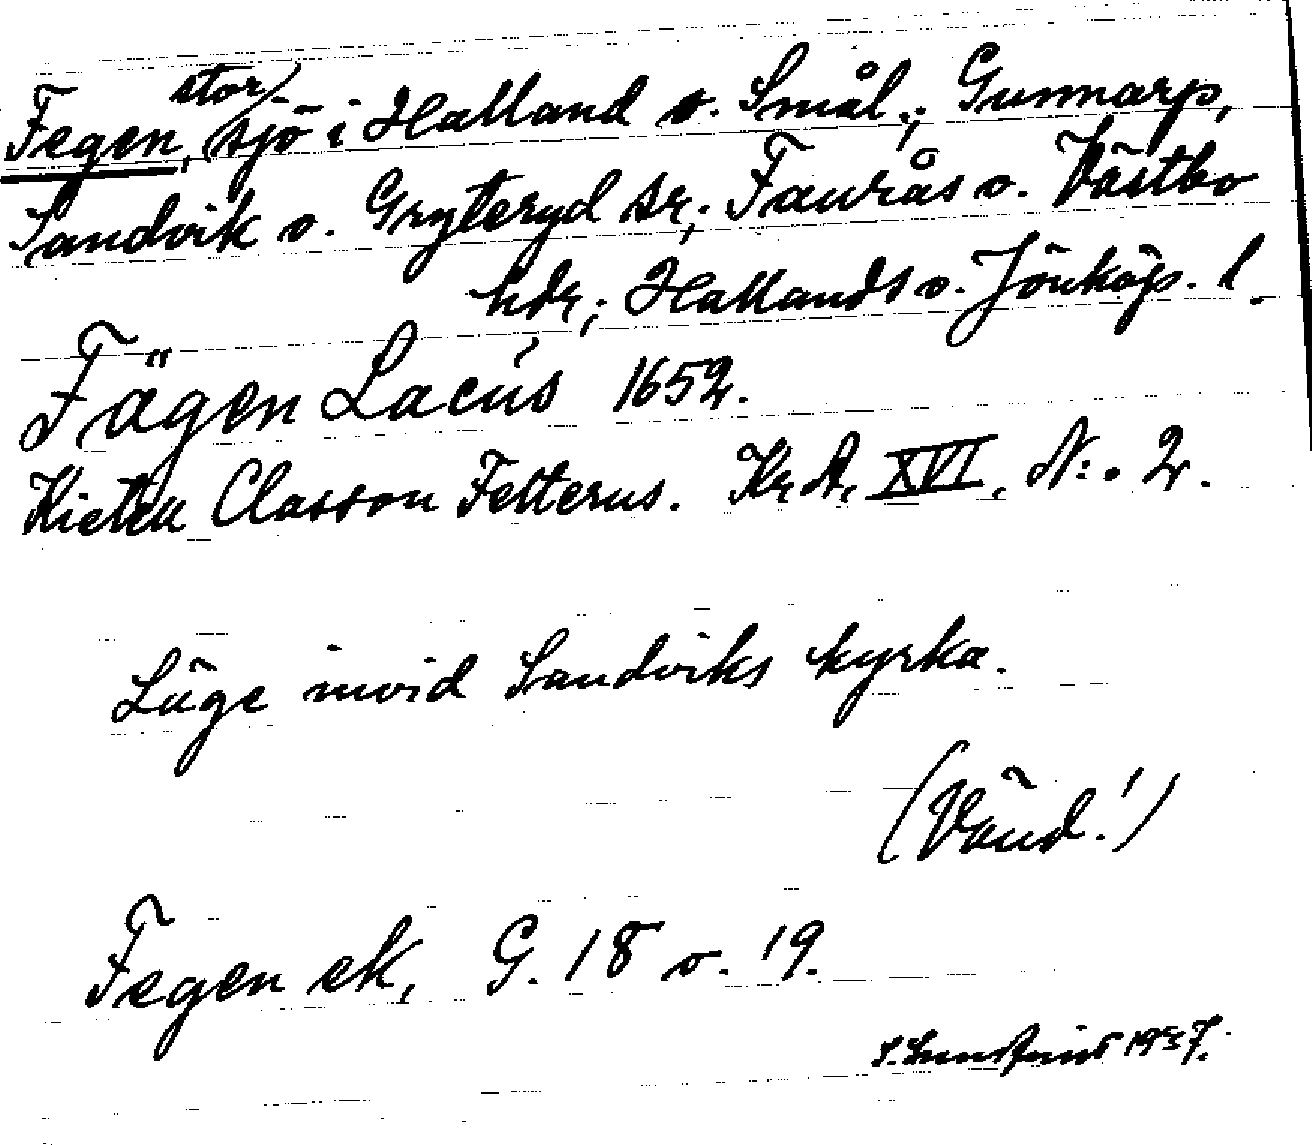 Fegen, stor sjö i Halland o. Smål.; Gunnarp,
Sandvik o. Gryteryd sr; Faurås o. Västbo
hdr; Hallands o. Jönköp. l.
Fägen Lacus 1652.
Kietell Classon Felterus. Kr. A. XVI. N:o 2.
Läge invid Sandviks kyrka.
(Vänd!)
Fegen ek, G. 18 o. 19.